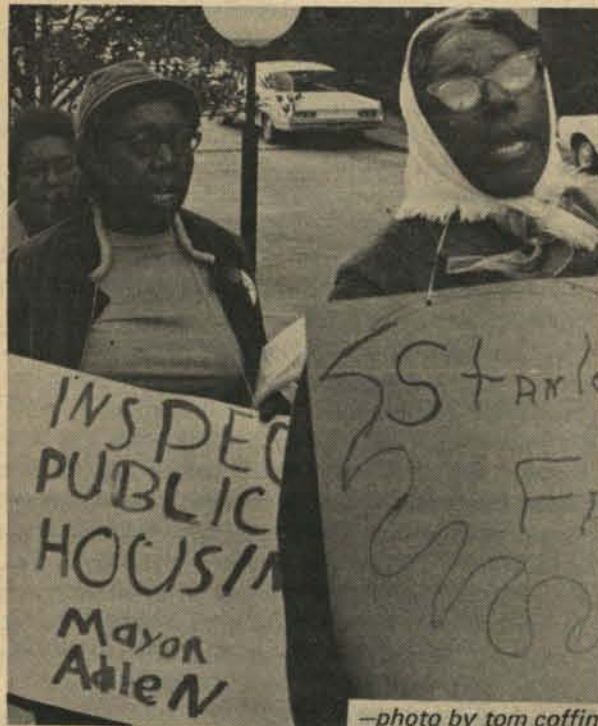 INSPEC
PUBLIC
HOUSIN
Mayor
AlleN
StANl
F
—photo by tom coffin